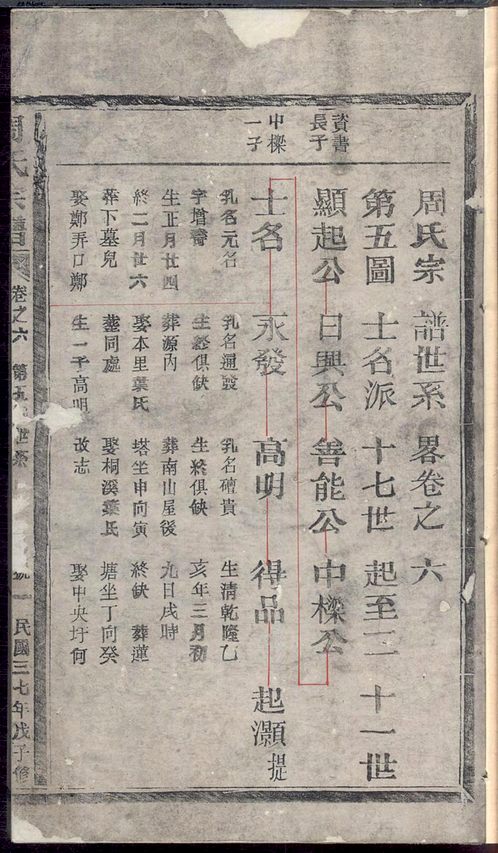 周氏宗譜世系畧卷之六
第五圖 士名派 十七世起至二十一世
資書長子
顯起公 日興公 善能公 中樑公
中樑一子
士名 永發 高明 得品 起灝 提
乳名元名 乳名通發 乳名礶貴 生清乾隆乙
字堦 生終俱缺 生終俱缺 亥年三月初
生正月廿四 葬源内 葬南山屋後 九日戌時
終二月廿六 娶本里葉氏 塔坐申向寅 終缺 葬蓮
葬下墓兒 塟同處 娶桐溪葉氏 塘坐丁向癸
娶鄭弄口鄭 生一子高明 改志 娶中央圩何
周氏宗譜 卷之六 第五 世系 一 民國三七年戊子修